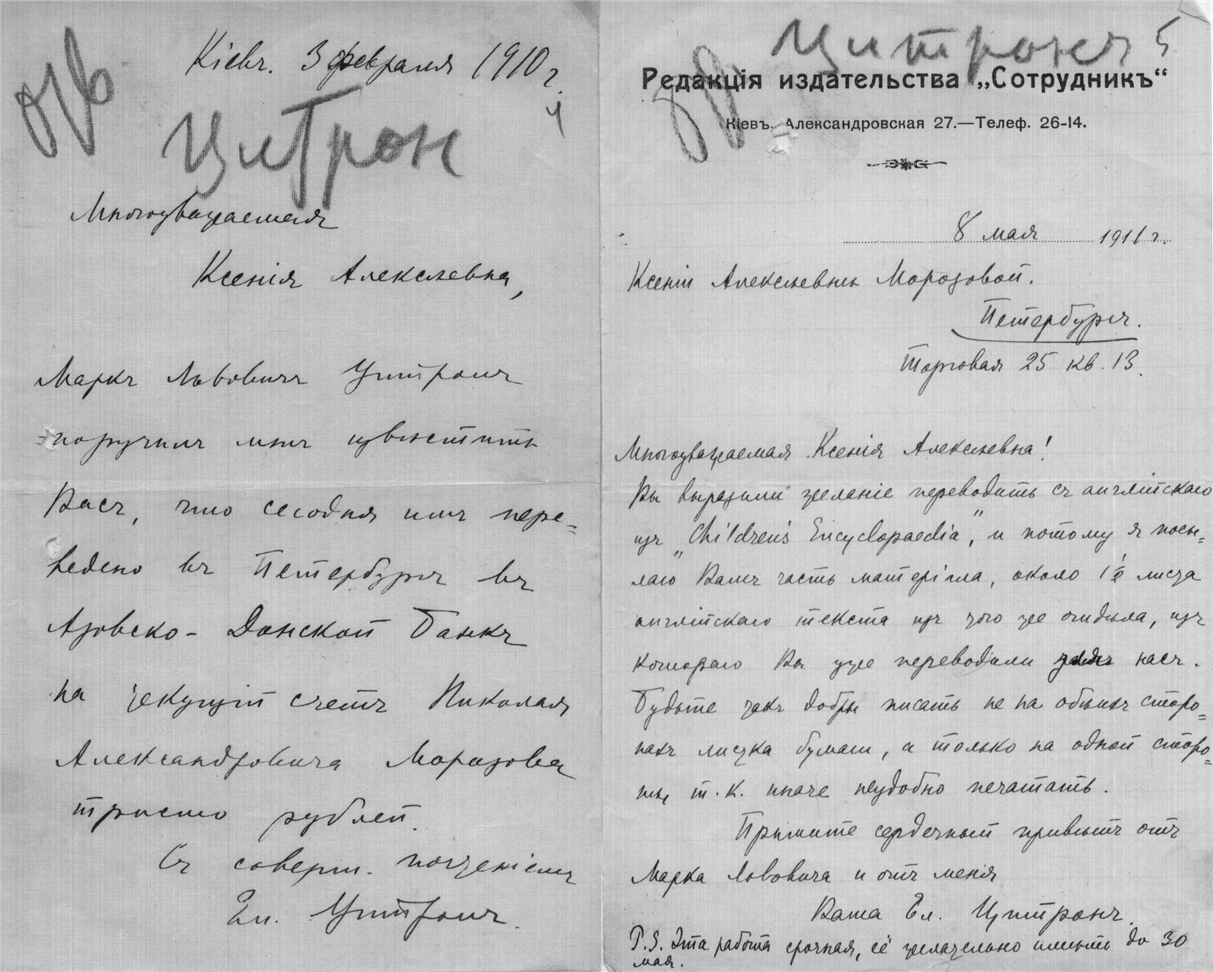 Кіевъ. 3 февраля 1910 г.
4
Цитрон
Многоуважаемая
Ксенія Алексѣевна,
Маркъ Львовичъ Цитронъ
поручилъ мнѣ извѣстить
Васъ, что сегодня имъ пере=
ведено въ Петербургъ въ
Азовско-Донской Банкъ
на текущій счетъ Николая
Александровича Морозова
триста рублей.
Съ соверш. почтеніемъ
Ел. Цитронъ.
Цитронъ 5
Редакція издательства „Сотрудникъ“
Кіевъ. Александровская 27.—Телеф. 26-14.
8 мая 1911 г.
Ксеніи Алексѣевнѣ Морозовой.
Петербургъ.
Торговая 25 кв. 13.
Многоуважаемая Ксенія Алексѣевна!
Вы выразили желаніе переводить съ англійскаго
изъ „Children's Encyclopaedia“, и потому я посы=
лаю Вамъ часть матеріала, около 1½ листа
англійскаго текста изъ того же отдѣла, изъ
котораго Вы уже переводили для насъ.
Будьте такъ добры писать не на обѣихъ сторо=
нахъ листка бумаги, а только на одной сторо=
нѣ, т. к. иначе неудобно печатать.
Примите сердечный привѣтъ отъ
Марка Львовича и отъ меня
Ваша Ел. Цитронъ.
P.S. Эта работа срочная, её желательно имѣть до 30
мая.